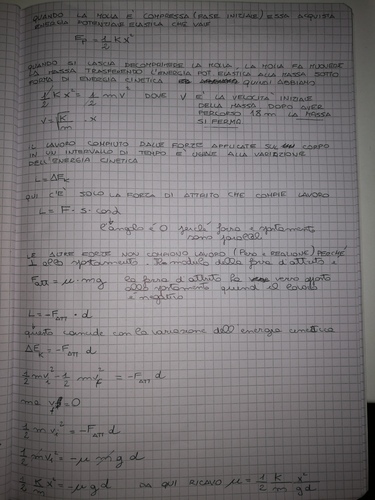 QUANDO LA MOLLA È COMPRESSA (FASE INIZIALE) ESSA ACQUISTA
ENERGIA POTENZIALE ELASTICA CHE VALE
Ep = 1/2 Kx²
QUANDO SI LASCIA DECOMPRIMERE LA MOLLA, LA MOLLA FA MUOVERE
LA MASSA TRASFERENDO L'ENERGIA POT. ELASTICA ALLA MASSA SOTTO
FORMA DI ENERGIA CINETICA QUINDI ABBIAMO
1/2 Kx² = 1/2 mV² DOVE V È LA VELOCITÀ INIZIALE
DELLA MASSA DOPO AVER
PERCORSO 18 m LA MASSA
SI FERMA
V = √K/m · x
IL LAVORO COMPIUTO DALLE FORZE APPLICATE SU UN CORPO
IN UN INTERVALLO DI TEMPO È UGUALE ALLA VARIAZIONE
DELL'ENERGIA CINETICA
L = ΔEK
QUI C'È SOLO LA FORZA DI ATTRITO CHE COMPIE LAVORO
L = F · s · cosα
l'angolo è 0 perché forza e spostamento
sono paralleli
LE ALTRE FORZE NON COMPIONO LAVORO (PESO E REAZIONE) PERCHÉ
⊥ allo spostamento. Il modulo della forza d'attrito è
FATT = μ · mg la forza d'attrito ha verso opposto
allo spostamento quindi il lavoro
è negativo
L = -FATT · d
questo coincide con la variazione dell'energia cinetica
ΔEK = -FATT d
1/2 mVi² - 1/2 mVf² = -FATT d
ma Vf = 0
1/2 mVi² = -FATT d
1/2 mVi² = -μ m g d
1/2 K x² = -μ g d DA QUI RICAVO μ = 1/2 K/m x²/gd